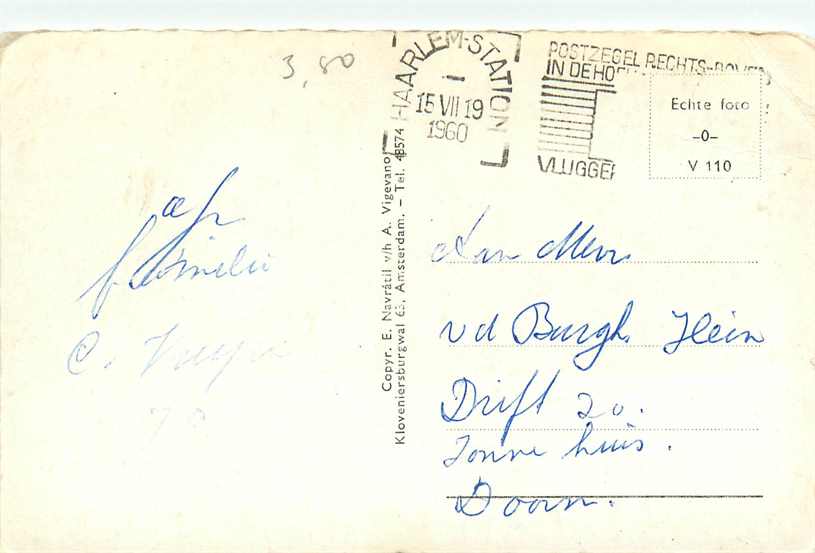 3,80
HAARLEM-STATION
15 VII 19
1960
POSTZEGEL RECHTS-BOVEN
IN DE HO
VLUGGER
Echte foto
-0-
V 110
Copyr. E. Navrátil v/h A. Vigevano
Kloveniersburgwal 63. Amsterdam. - Tel. 48574
afz
familie
C.
Aan Mevr
v d Burgh Hein
Drift 20.
Zonne huis.
Doorn.